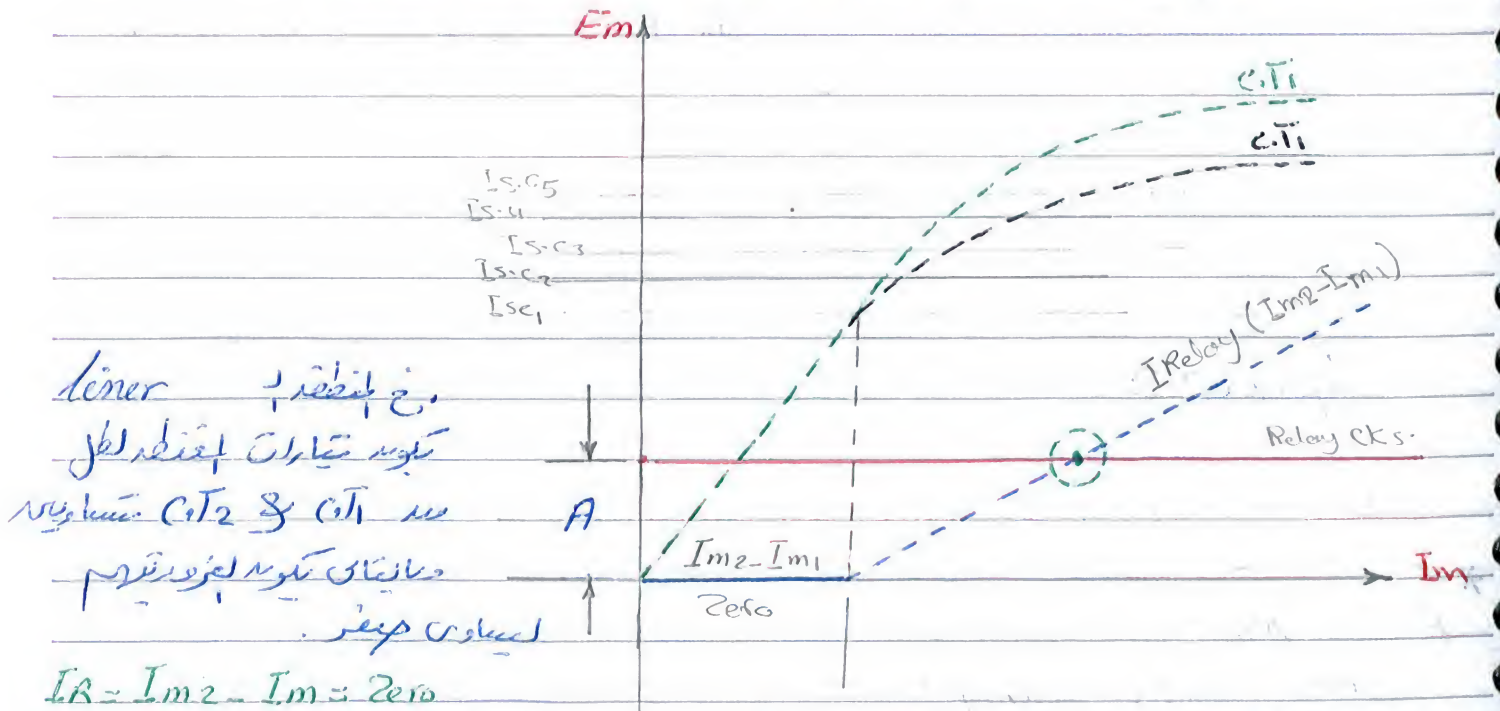 Em
C.T1
C.T1
Is.c5
Is.c4
Is.c3
Is.c2
Isc1
IRelay (Im2-Im1)
Relay CKs.
في المنطقه الـ liner
تكون تيارات المغنطه لكل
من CT1 & CT2 متساويين
وبالتالى تكون الفرق بينهم
ليساوى صفر.
A
Im2-Im1
Zero
Im
IR = Im2 - Im = Zero